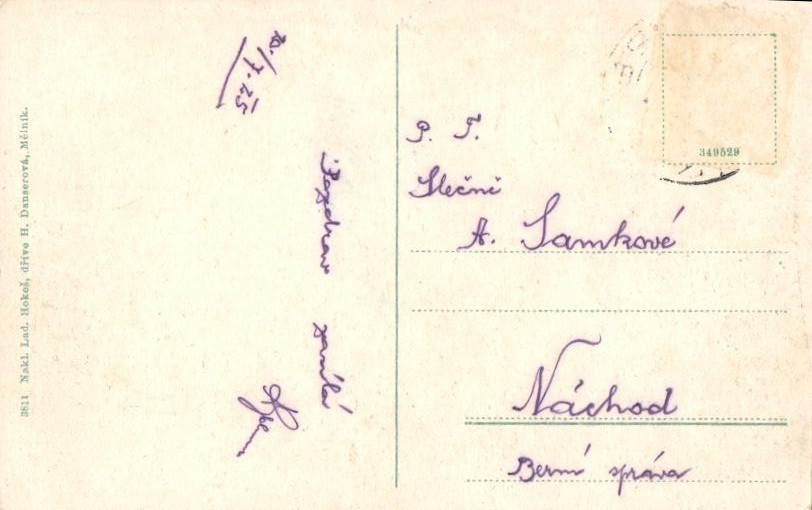 3811 Nakl. Lad. Hokeš, dříve H. Danserová, Mělník.
10./7. 25
Pozdrav
zasílá
349529
P. T.
Slečně
A. Samkové
Náchod
Berní správa